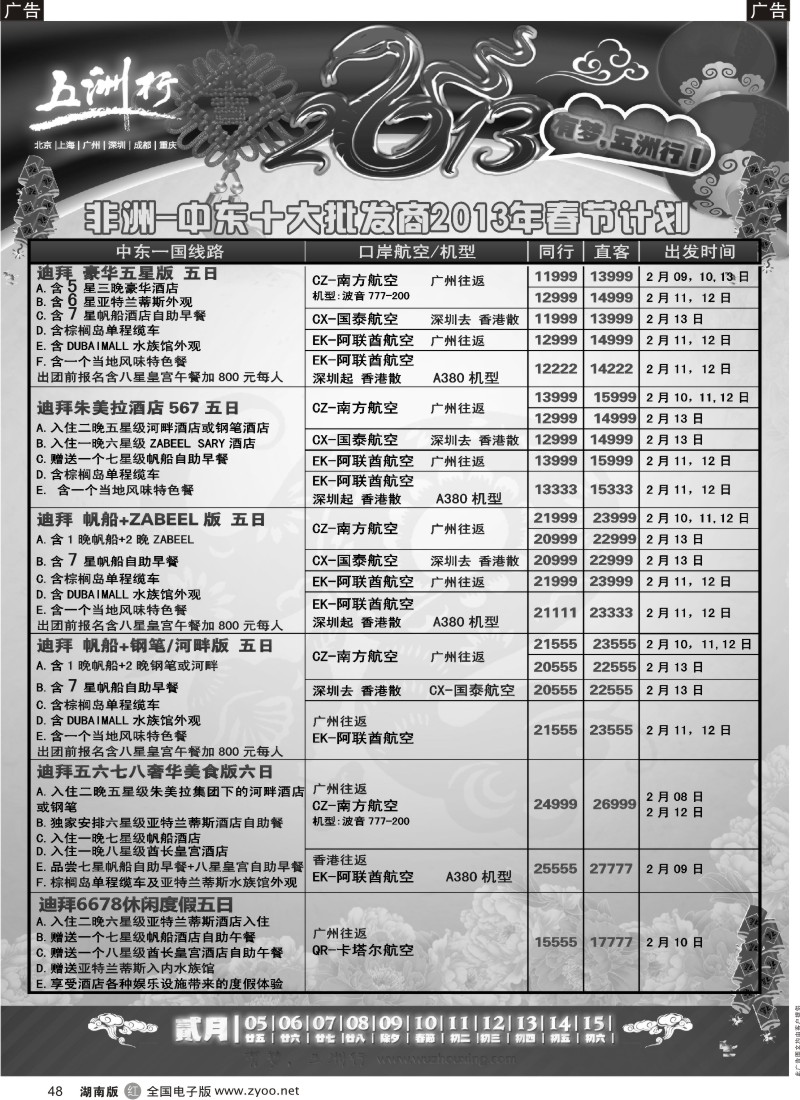 广告
广告
五洲行
北京|上海|广州|深圳|成都|重庆
2013
有梦,五洲行!
非洲-中东十大批发商2013年春节计划
中东一国线路 口岸航空/机型 同行 直客 出发时间
迪拜 豪华五星版 五日
A.含5 星三晚豪华酒店
B.含6 星亚特兰蒂斯外观
C.含7 星帆船酒店自助早餐
D.含棕榈岛单程缆车
E.含DUBAIMALL水族馆外观
F.含一个当地风味特色餐
出团前报名含八星皇宫午餐加800元每人
CZ-南方航空 广州往返
机型:波音777-200
11999 13999 2月09,10,13日
12999 14999 2月11，12日
CX-国泰航空 深圳去 香港散 11999 13999 2月13日
EK-阿联酋航空 广州往返 12999 14999 2月11，12日
EK-阿联酋航空
深圳起 香港散 A380机型 12222 14222 2月11，12日
迪拜朱美拉酒店567五日
A.入住二晚五星级河畔酒店或钢笔酒店
B.入住一晚六星级ZABEEL SARY酒店
C.赠送一个七星级帆船自助早餐
D.含棕榈岛单程缆车
E. 含一个当地风味特色餐
CZ-南方航空 广州往返
13999 15999 2月10,11,12日
12999 14999 2月13日
CX-国泰航空 深圳去 香港散 12999 14999 2月13日
EK-阿联酋航空 广州往返 13999 15999 2月11，12日
EK-阿联酋航空
深圳起 香港散 A380机型 13333 15333 2月11，12日
迪拜 帆船+ZABEEL版 五日
A.含1晚帆船+2晚ZABEEL
B.含7 星帆船自助早餐
C.含棕榈岛单程缆车
D.含DUBAIMALL水族馆外观
E.含一个当地风味特色餐
出团前报名含八星皇宫午餐加800元每人
CZ-南方航空 广州往返
21999 23999 2月10,11,12日
20999 22999 2月13日
CX-国泰航空 深圳去 香港散 20999 22999 2月13日
EK-阿联酋航空 广州往返 21999 23999 2月11，12日
EK-阿联酋航空
深圳起 香港散 A380机型 21111 23333 2月11，12日
迪拜 帆船+钢笔/河畔版 五日
A.含1晚帆船+2晚钢笔或河畔
B.含7 星帆船自助早餐
C.含棕榈岛单程缆车
D.含DUBAIMALL水族馆外观
E.含一个当地风味特色餐
出团前报名含八星皇宫午餐加800元每人
CZ-南方航空 广州往返
21555 23555 2月10，11,12日
20555 22555 2月13日
深圳去 香港散 CX-国泰航空 20555 22555 2月13日
广州往返
EK-阿联酋航空 21555 23555 2月11，12日
迪拜五六七八奢华美食版六日
A.入住二晚五星级朱美拉集团下的河畔酒店
或钢笔
B.独家安排六星级亚特兰蒂斯酒店自助餐
C.入住一晚七星级帆船酒店
D.入住一晚八星级酋长皇宫酒店
E.品尝七星帆船自助早餐+八星皇宫自助早餐
F.棕榈岛单程缆车及亚特兰蒂斯水族馆外观
广州往返
CZ-南方航空
机型:波音777-200
24999 26999 2月08日
2月12日
香港往返
EK-阿联酋航空 A380机型 25555 27777 2月09日
迪拜6678休闲度假五日
A.入住二晚六星级亚特兰蒂斯酒店入住
B.赠送一个七星级帆船酒店自助午餐
C.赠送一个八星级酋长皇宫酒店自助午餐
D.赠送亚特兰蒂斯入内水族馆
E.享受酒店各种娱乐设施带来的度假体验
广州往返
QR-卡塔尔航空 15555 17777 2月10日
贰月 |05|06|07|08|09|10|11|12|13|14|15|
|廿五|廿六|廿七|廿八|除夕|春节|初二|初三|初四|初五|初六|
48 湖南版 红 全国电子版 www.zyoo.net